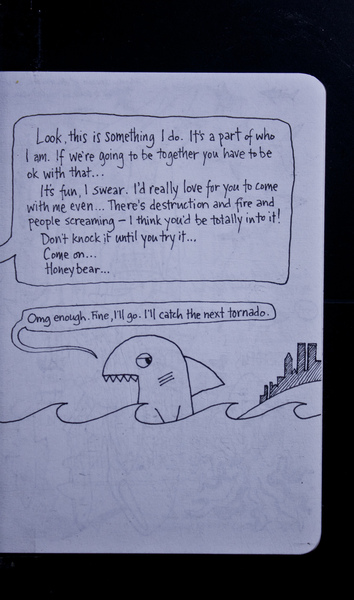 Look, this is something I do. It's a part of who
I am. If we're going to be together you have to be
ok with that...
It's fun, I swear. I'd really love for you to come
with me even... There's destruction and fire and
people screaming – I think you'd be totally into it!
Don't knock it until you try it...
Come on...
Honey bear...
Omg enough. Fine, I'll go. I'll catch the next tornado.